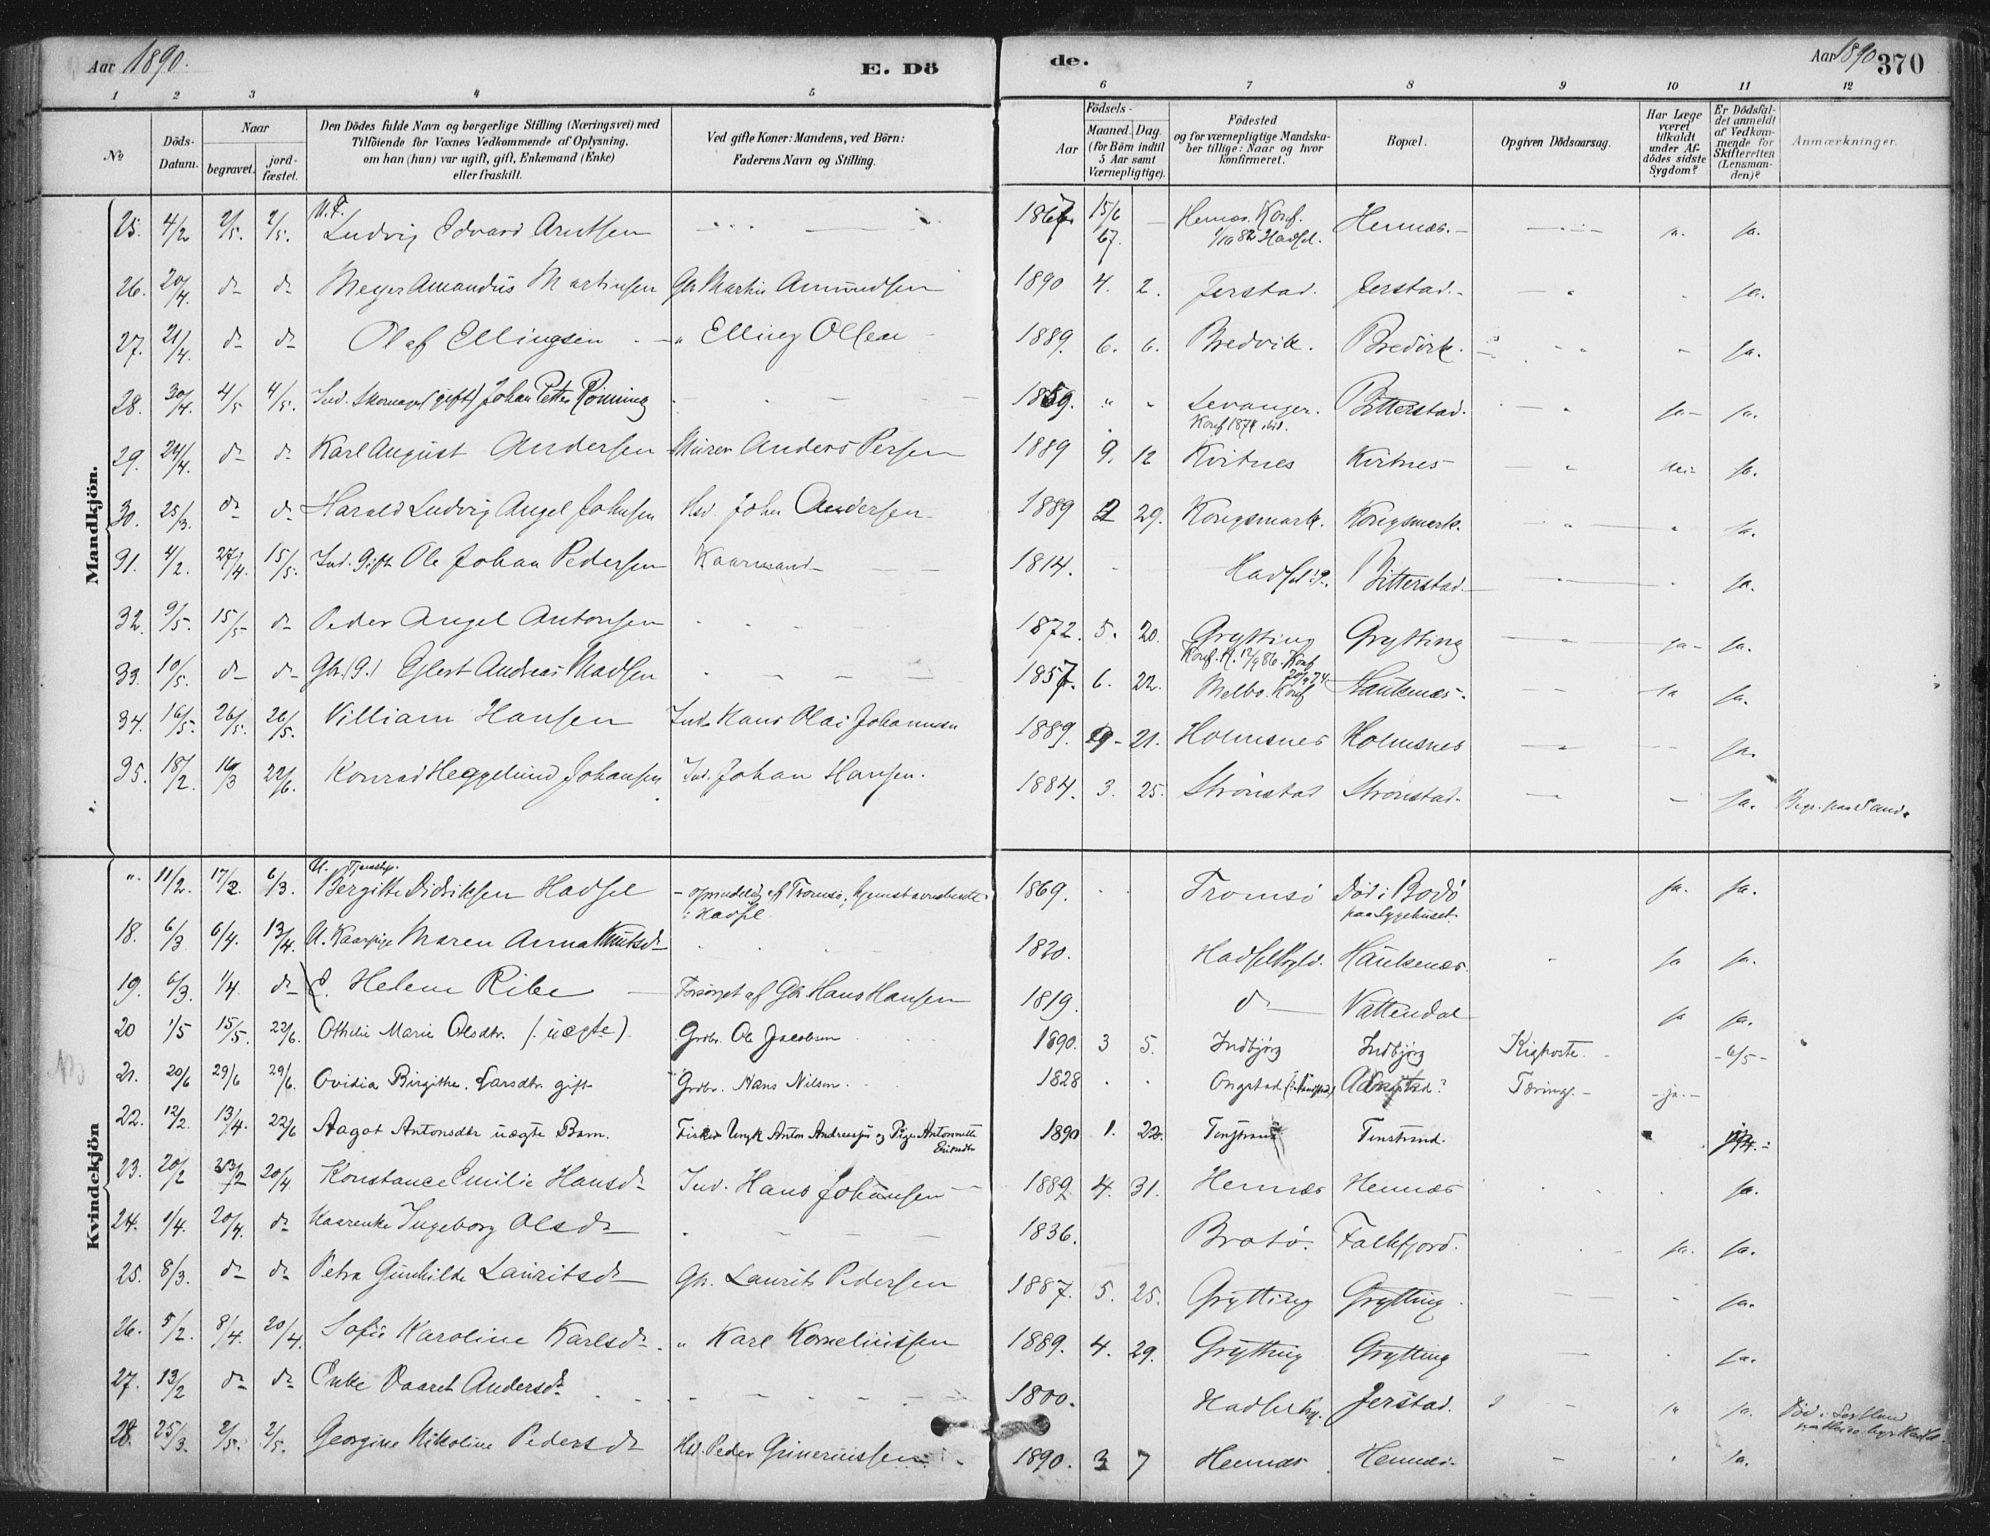 Aar 1890.
E. Dö
de.
Aar 1890 370
1 2 3 4 5 6 7 8 9 10 11 12
No
Döds-Datum.
Naar
begravet.
jord-fæstet.
Den Dödes fulde Navn og borgerlige Stilling (Næringsvei) med
Tilföiende for Voxnes Vedkommende af Oplysning,
om han (hun) var ugift, gift, Enkemand (Enke)
eller fraskilt.
Ved gifte Koner: Mandens, ved Börn:
Faderens Navn og Stilling.
Aar
Födsels-
Maaned. Dag.
(for Börn indtil
5 Aar samt
Værnepligtige).
Födested
og for værnepligtige Mandska-
ber tillige: Naar og hvor
konfirmeret.
Bopæl.
Opgiven Dödsaarsag.
Har Læge
været
tilkaldt
under Af-
dödes sidste
Sygdom?
Er Dödsfal-
det anmeldt
af Vedkom-
mende for
Skifteretten
(Lensman-
den)?
Anmærkninger.
Mandkjön.
25. 4/2 2/5. 2/5. U.F. Ludvig Edvard Arntsen 1867 15/6 67. Hennæs. Konf. 1/10 82 Hadsel. Hennæs. ja. ja.
26. 20/4 do do Meyer Amandus Martinsen Gbr Martin Amundsen 1890 4. 2. Jerstad. Jerstad. ja.
27. 21/4. do do Olaf Ellingsen " Elling Olsen 1889. 6. 6. Bredvik. Bredvik. ja.
28. 30/4. 4/5 4/5. Ind. Skomager (gift) Johan Petter Rönning 1859. " " Levanger. Konf 1874 ibid. Bitterstad. ja ja.
29. 24/4. do do Karl August Andersen Murer Anders Persen 1889 9. 12 Kvitnes Kvitnes nei ja.
30. 25/3. do do Harald Ludvig Angel Johnsen Hsd. John Andersen 1889 2 29. Kongsmark. Kongsmark. ja.
31. 4/2. 27/4. 15/5. Ind. Gift Ole Johan Pedersen Kaarmand 1814. Hadsel Bitterstad ja.
32. 9/5. 15/5 do Peder Angel Antonsen 1872. 5. 20. Grytting Konf. H. 12/9 86. Grytting ja ja.
33. 10/5. do do Gbr. (G.) Eglert Andreas Madsen 1857. 6. 22. Melbo. Konf Haukenæs. ja ja.
34. 16/5. 26/5. 26/5. Villiam Hansen Ind. Hans Olai Johannesen 1889. 9 21. Holmsnes Holmsnes ja.
35. 18/2. 16/3 22/6. Konrad Heggelund Johansen Ind. Johan Hansen. 1884. 3. 25. Strönstad Strönstad. ja. Begr. paa Sand.
Kvindekjön
" 11/2. 17/2 6/3. U. Tjenstp. Bergitte Didriksen Hadsel oprindelig af Tromsö, hjemstavnsberett. i Hadsel. 1869. Tromsö Död i Bodö paa Sygehuset. ja. ja.
18. 6/3 6/4. 13/4. U. Kaarpige Maren Anna Knutsdr 1820. Hadsel Haukenæs. ja ja.
19. 6/3. 1/4 do E. Helene Ribe Forsörget af Gbr Hans Hansen 1819. do Vattendal ja ja.
20 1/5 15/5. 22/6. Othelie Marie Olsdtr. (uægte). Grdbr. Ole Jacobsen 1890. 3 5. Indbjörg Indbjörg Kighoste. 6/5
21. 20/6 29/6 29/6. Ovidia Birgitthe Larsdtr. gift Grdbr. Hans Nilsen. 1828 Ongstad Tæring. ja.
22. 12/2. 13/4. 22/6 Aagot Antonsdtr uægte Barn. Fisker Ungk Anton Andreassen og Pige Antonette 1890 1. 22. Tenstrand Tenstrand.
23. 20/2 23/2 20/4 Konstance Emilie Hansdr Ind. Hans Johansen 1889 4. 31. Hennæs Hennæs ja.
24. 1/4. 20/4. do Kaarenke Ingeborg Olsdr 1836. Bratö. Falkfjord. ja. ja.
25. 8/3. do do Petra Gunhilde Lauritsdr Gbr. Laurits Pedersen 1887. 5. 25. Grytting Grytting. ja.
26. 5/2. 8/4. 20/4. Sofie Karoline Karlsdr. " Karl Korneliussen 1889. 4. 29. Grytting Grytting ja.
27. 13/2 do do Enke Baaret Andersdr. 1800. Hadsel Jerstad. " ja. Död i Sortland
28. 25/3. 2/5. 2/5. Georgine Nikoline Pedersdr Hsd. Peder Grineriussen 1890. 3 7 Hennæs Hennæs ja.